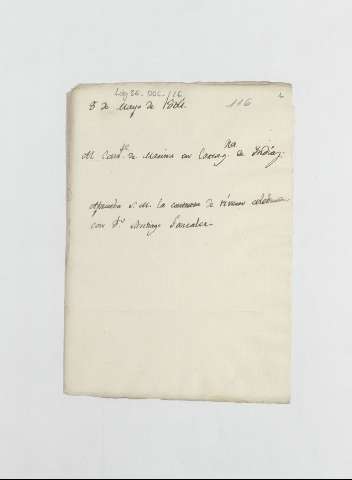 Leg 36. DOC. 116
116
5 de Mayo de
Al Com.te de Marina en Cartag.na de Indias.
Aprueba S. M. la contrata de víveres celebrada
con D.n Santiago Gonzalez